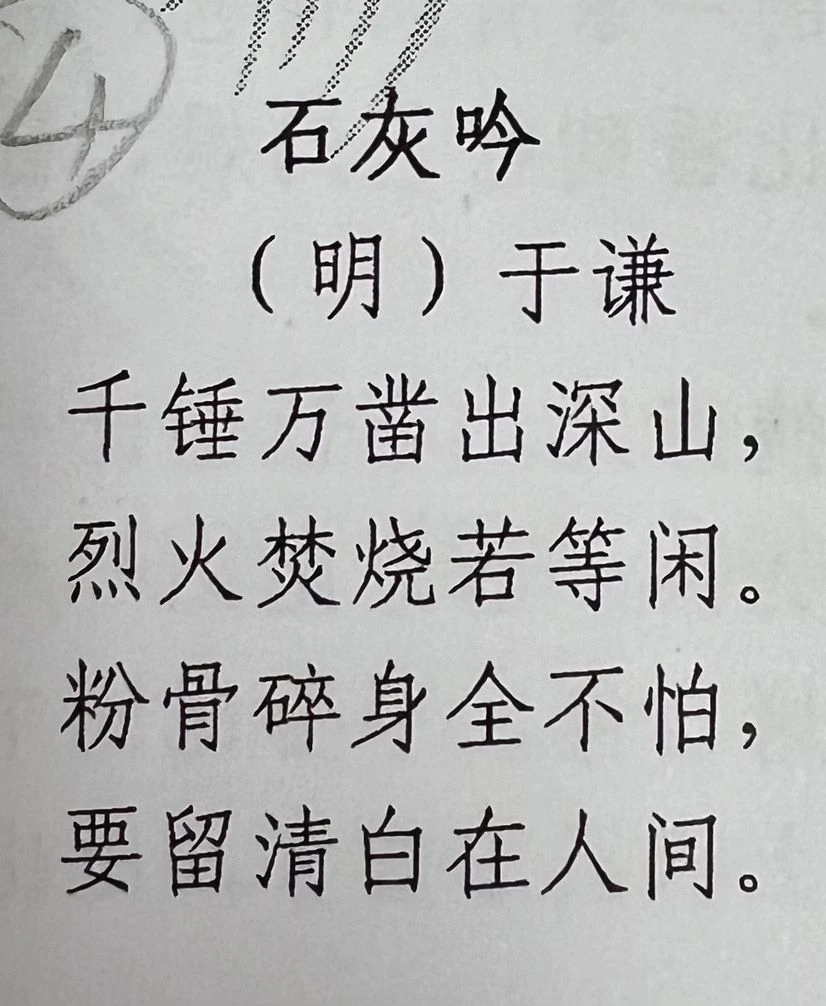 ④
石灰吟
（明）于谦
千锤万凿出深山，
烈火焚烧若等闲。
粉骨碎身全不怕，
要留清白在人间。